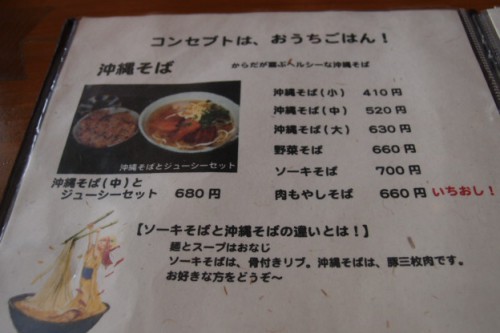 コンセプトは、おうちごはん！
沖縄そば
からだが喜ぶヘルシーな沖縄そば
沖縄そば(小) 410円
沖縄そば(中) 520円
沖縄そば(大) 630円
野菜そば 660円
ソーキそば 700円
肉もやしそば 660円 いちおし！
沖縄そばとジューシーセット
沖縄そば(中)と
ジューシーセット 680円
【ソーキそばと沖縄そばの違いとは！】
麺とスープはおなじ
ソーキそばは、骨付きリブ。沖縄そばは、豚三枚肉です。
お好きな方をどうぞ〜